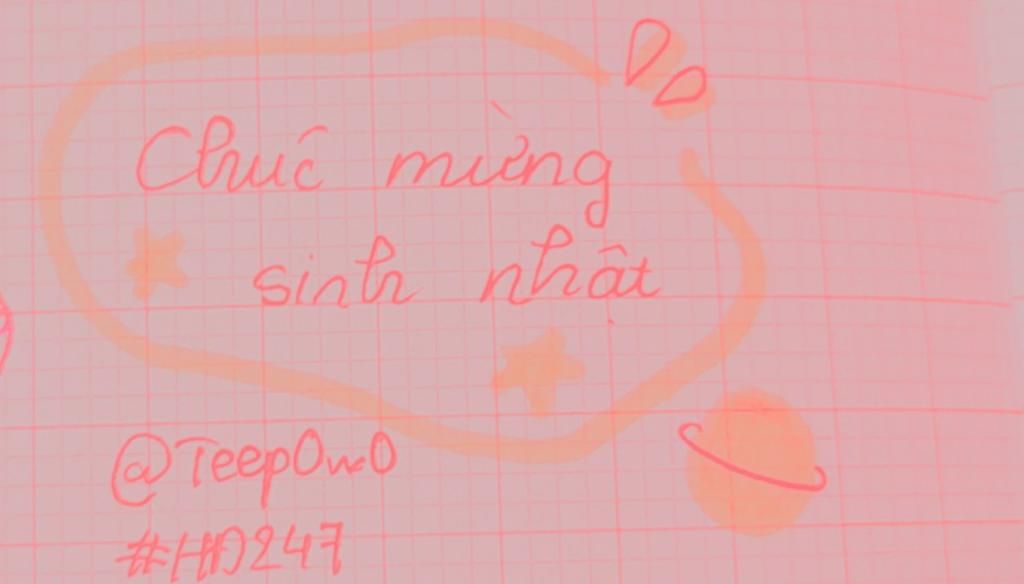 Chúc mừng
sinh nhật
@TeepOwO
#HĐ247